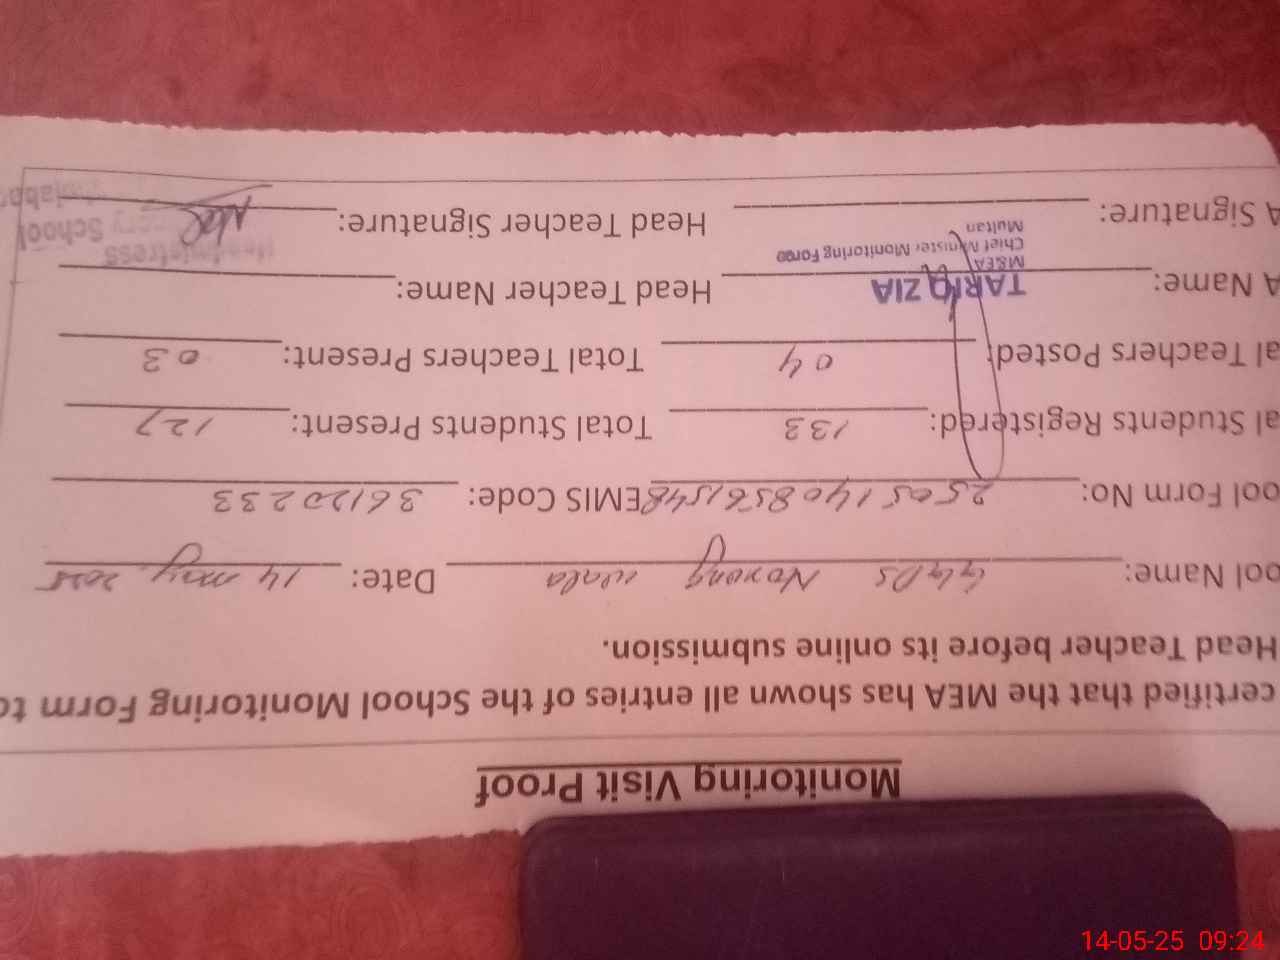 Monitoring Visit Proof
certified that the MEA has shown all entries of the School Monitoring Form to
Head Teacher before its online submission.
ool Name: GGPS Norong wala Date: 14 may, 2025
ool Form No: 25051408561548 EMIS Code: 36120233
al Students Registered: 133 Total Students Present: 127
al Teachers Posted: 04 Total Teachers Present: 03
A Name: TARIQ ZIA Head Teacher Name:
M&EA
Chief Minister Monitoring Force
Multan
Headmistress
A Signature: Head Teacher Signature:
School
14-05-25 09:24